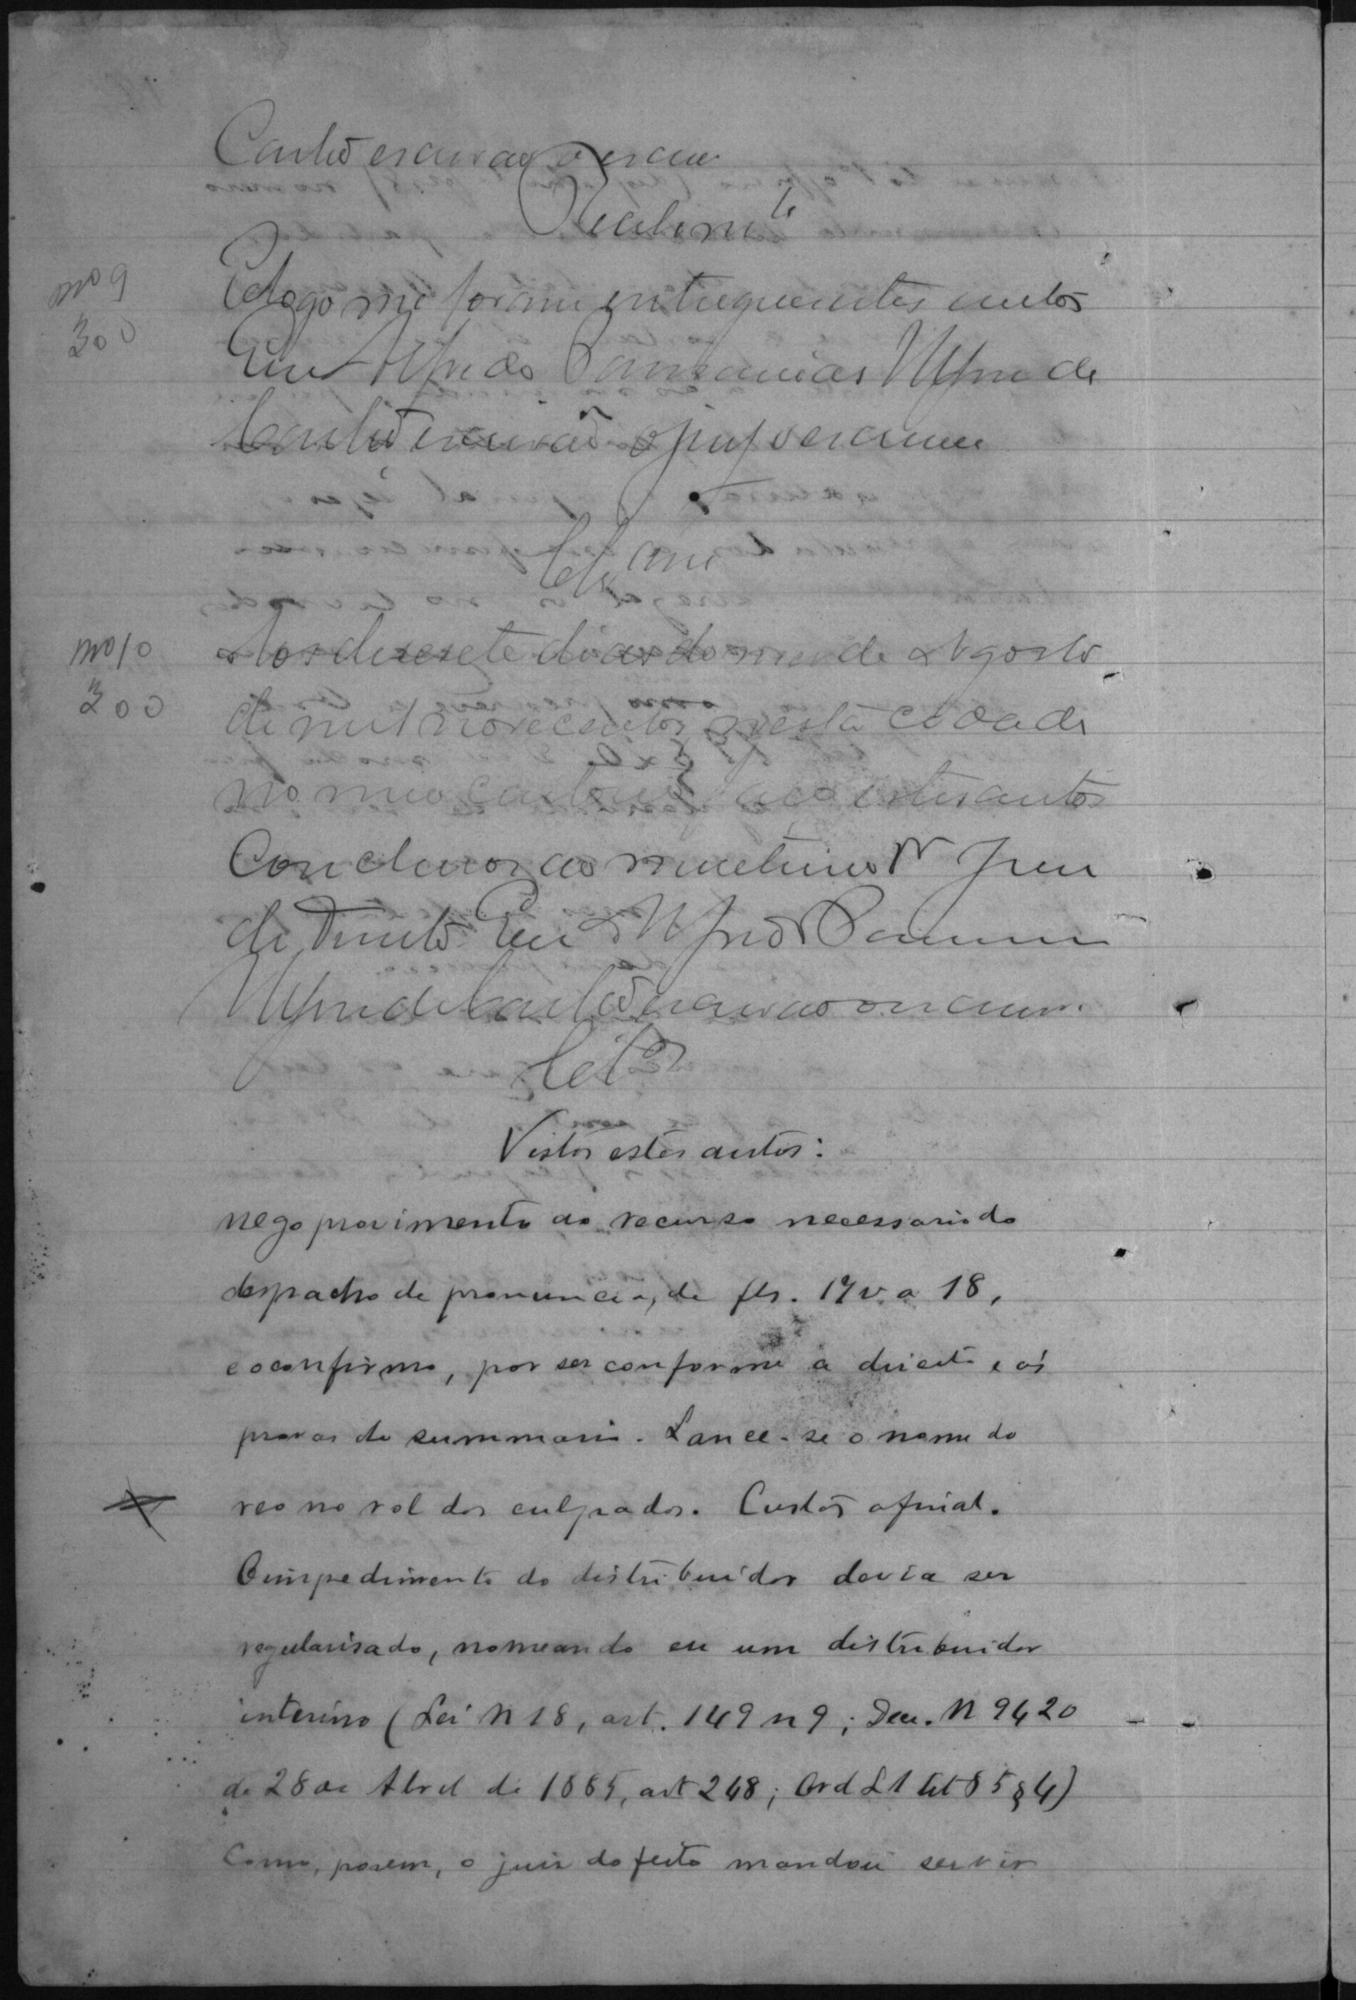 Castro escrivão o escrevi
Recebim.to
E logo me foram entregues estes autos
Eu Alfredo Alfredo de
Castro escrivão o escrevi
nº 9
300
Cl.am
nº 10
300
Aos desesete dias do mes de Agosto
de mil novecentos, nesta cidade
no meu cartorio faço estes autos
Conclusos ao Dr Juiz
de Direito Eu Alfredo
Alfredo de Castro escrivão o escrevi.
Cl.os
Vistos estes autos:
nego provimento ao recurso necessario do
despacho de pronuncia, de fls. 17v. a 18,
e o confirmo, por ser conforme a direito e ás
provas do summario. Lance-se o nome do
reo no rol dos culpados. Custas afinal.
O impedimento do distribuidor devia ser
regularisado, nomeando eu um distribuidor
interino (Lei N 18, art. 149 n 9; Dec. N 9420
de 28 de Abril de 1885, art 248; Ord L 1 tit 85 § 4)
Como, porem, o juiz do feito mandou servir